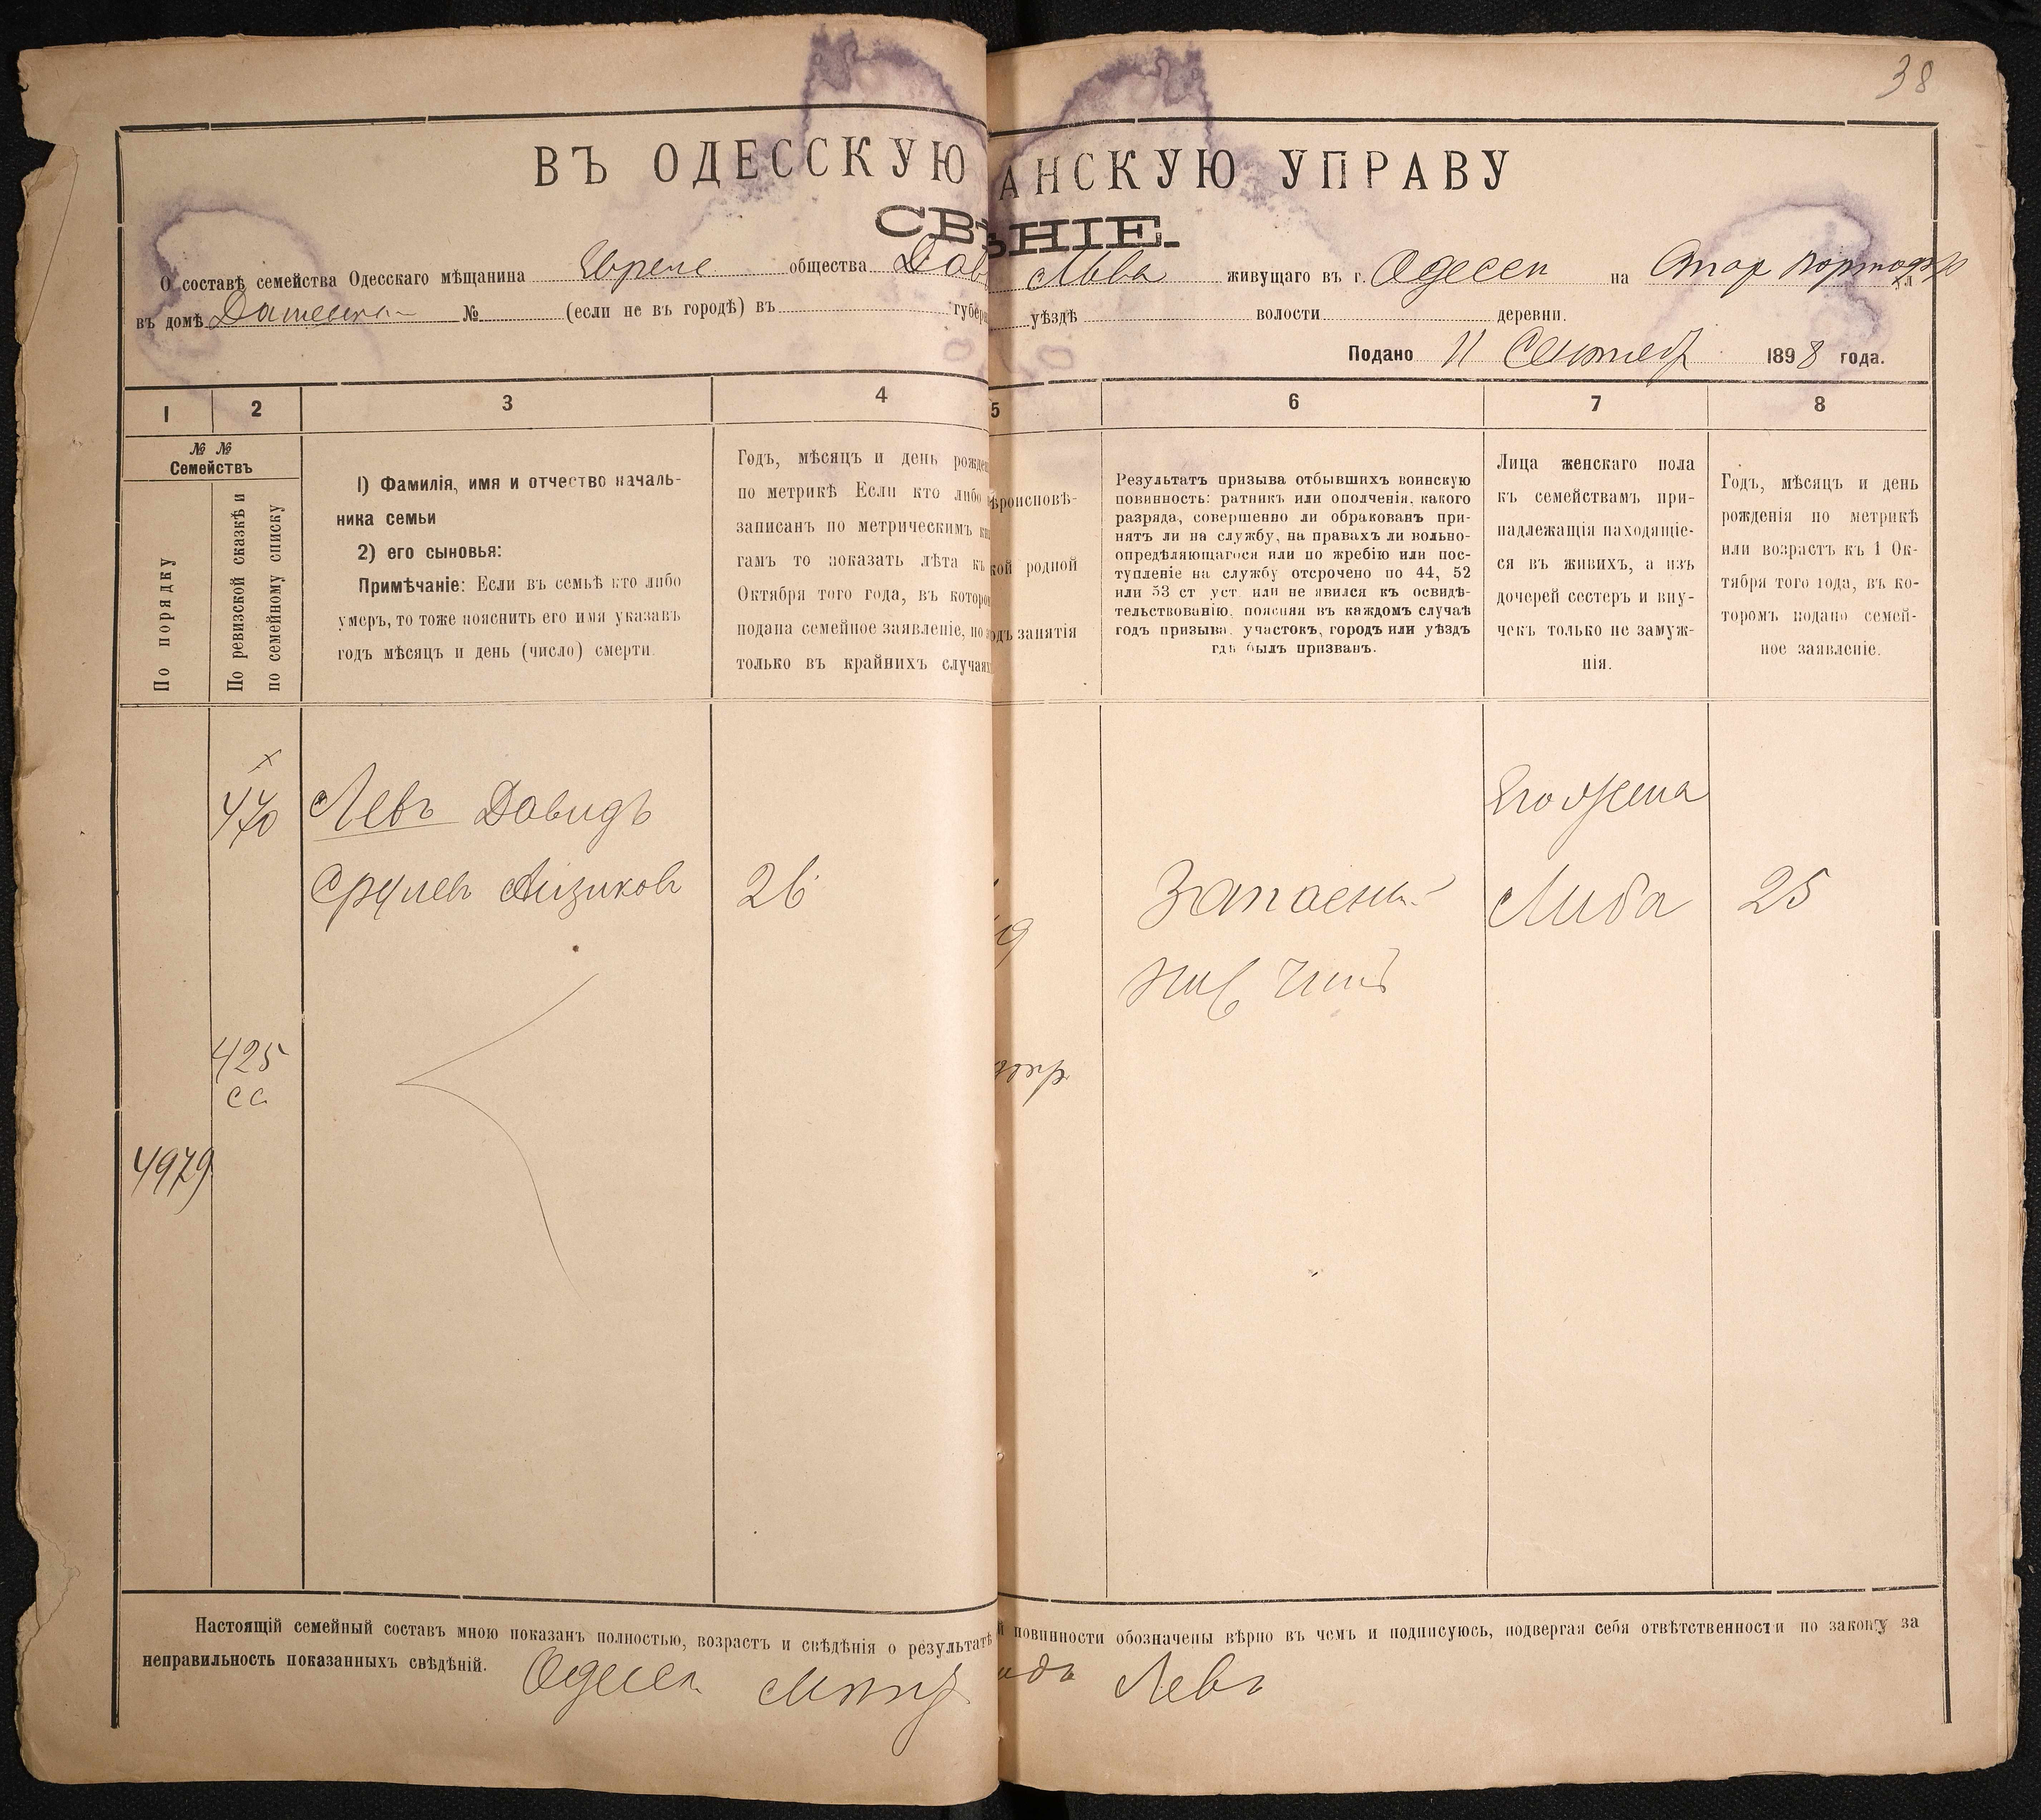 38
ВЪ ОДЕССКУЮ АНСКУЮ УПРАВУ
СВѢНІЕ.
О составѣ семейства Одесскаго мѣщанина Еврейс общества Дав Льва живущаго въ г. Одессѣ на Стар Портофр ул
въ домѣ № (если не въ городѣ) въ губер уѣздѣ волости деревни.
Подано 11 Сентяб 1898 года.
1 2 3 4 5 6 7 8
№ № Семействъ
По порядку
По ревизской сказкѣ и
по семейному списку
1) Фамилія, имя и отчество началь-
ника семьи
2) его сыновья:
Примѣчаніе: Если въ семьѣ кто либо
умеръ, то тоже пояснить его имя указавъ
годъ мѣсяцъ и день (число) смерти.
Годъ, мѣсяцъ и день рожде
по метрикѣ Если кто либо
записанъ по метрическимъ кн
гамъ то показать лѣта къ
Октября того года, въ которо
подана семейное заявленіе, но
только въ крайнихъ случаях
ѣроисповѣ-
кой родной
одъ занятія
Результатъ призыва отбывшихъ воинскую
повинность: ратникъ или ополченія, какого
разряда, совершенно ли обракованъ при-
нятъ ли на службу, на правахъ ли вольно-
опредѣляющагося или по жребію или пос-
тупленіе на службу отсрочено по 44, 52
или 53 ст уст или не явился къ освидѣ-
тельствованію, поясняя въ каждомъ случаѣ
годъ призыва, участокъ, городъ или уѣздъ
гдѣ былъ призванъ.
Лица женскаго пола
къ семействамъ при-
надлежащія находящіе-
ся въ живихъ, а изъ
дочерей сестеръ и вну-
чекъ только не замуж-
нія.
Годъ, мѣсяцъ и день
рожденія по метрикѣ
или возрастъ къ 1 Ок-
тября того года, въ ко-
торомъ подано семей-
ное заявленіе.
х
470 Левъ Давидъ Его жена
Срулевъ Айзиковъ 26 Запасный Либа 25
425
сс
4979
Настоящій семейный составъ мною показанъ полностью, возрастъ и свѣдѣнія о результатѣ й повинности обозначены вѣрно въ чемъ и подписуюсь, подвергая себя отвѣтственности по закону за
неправильность показанныхъ свѣдѣній. Одесск идъ Левъ